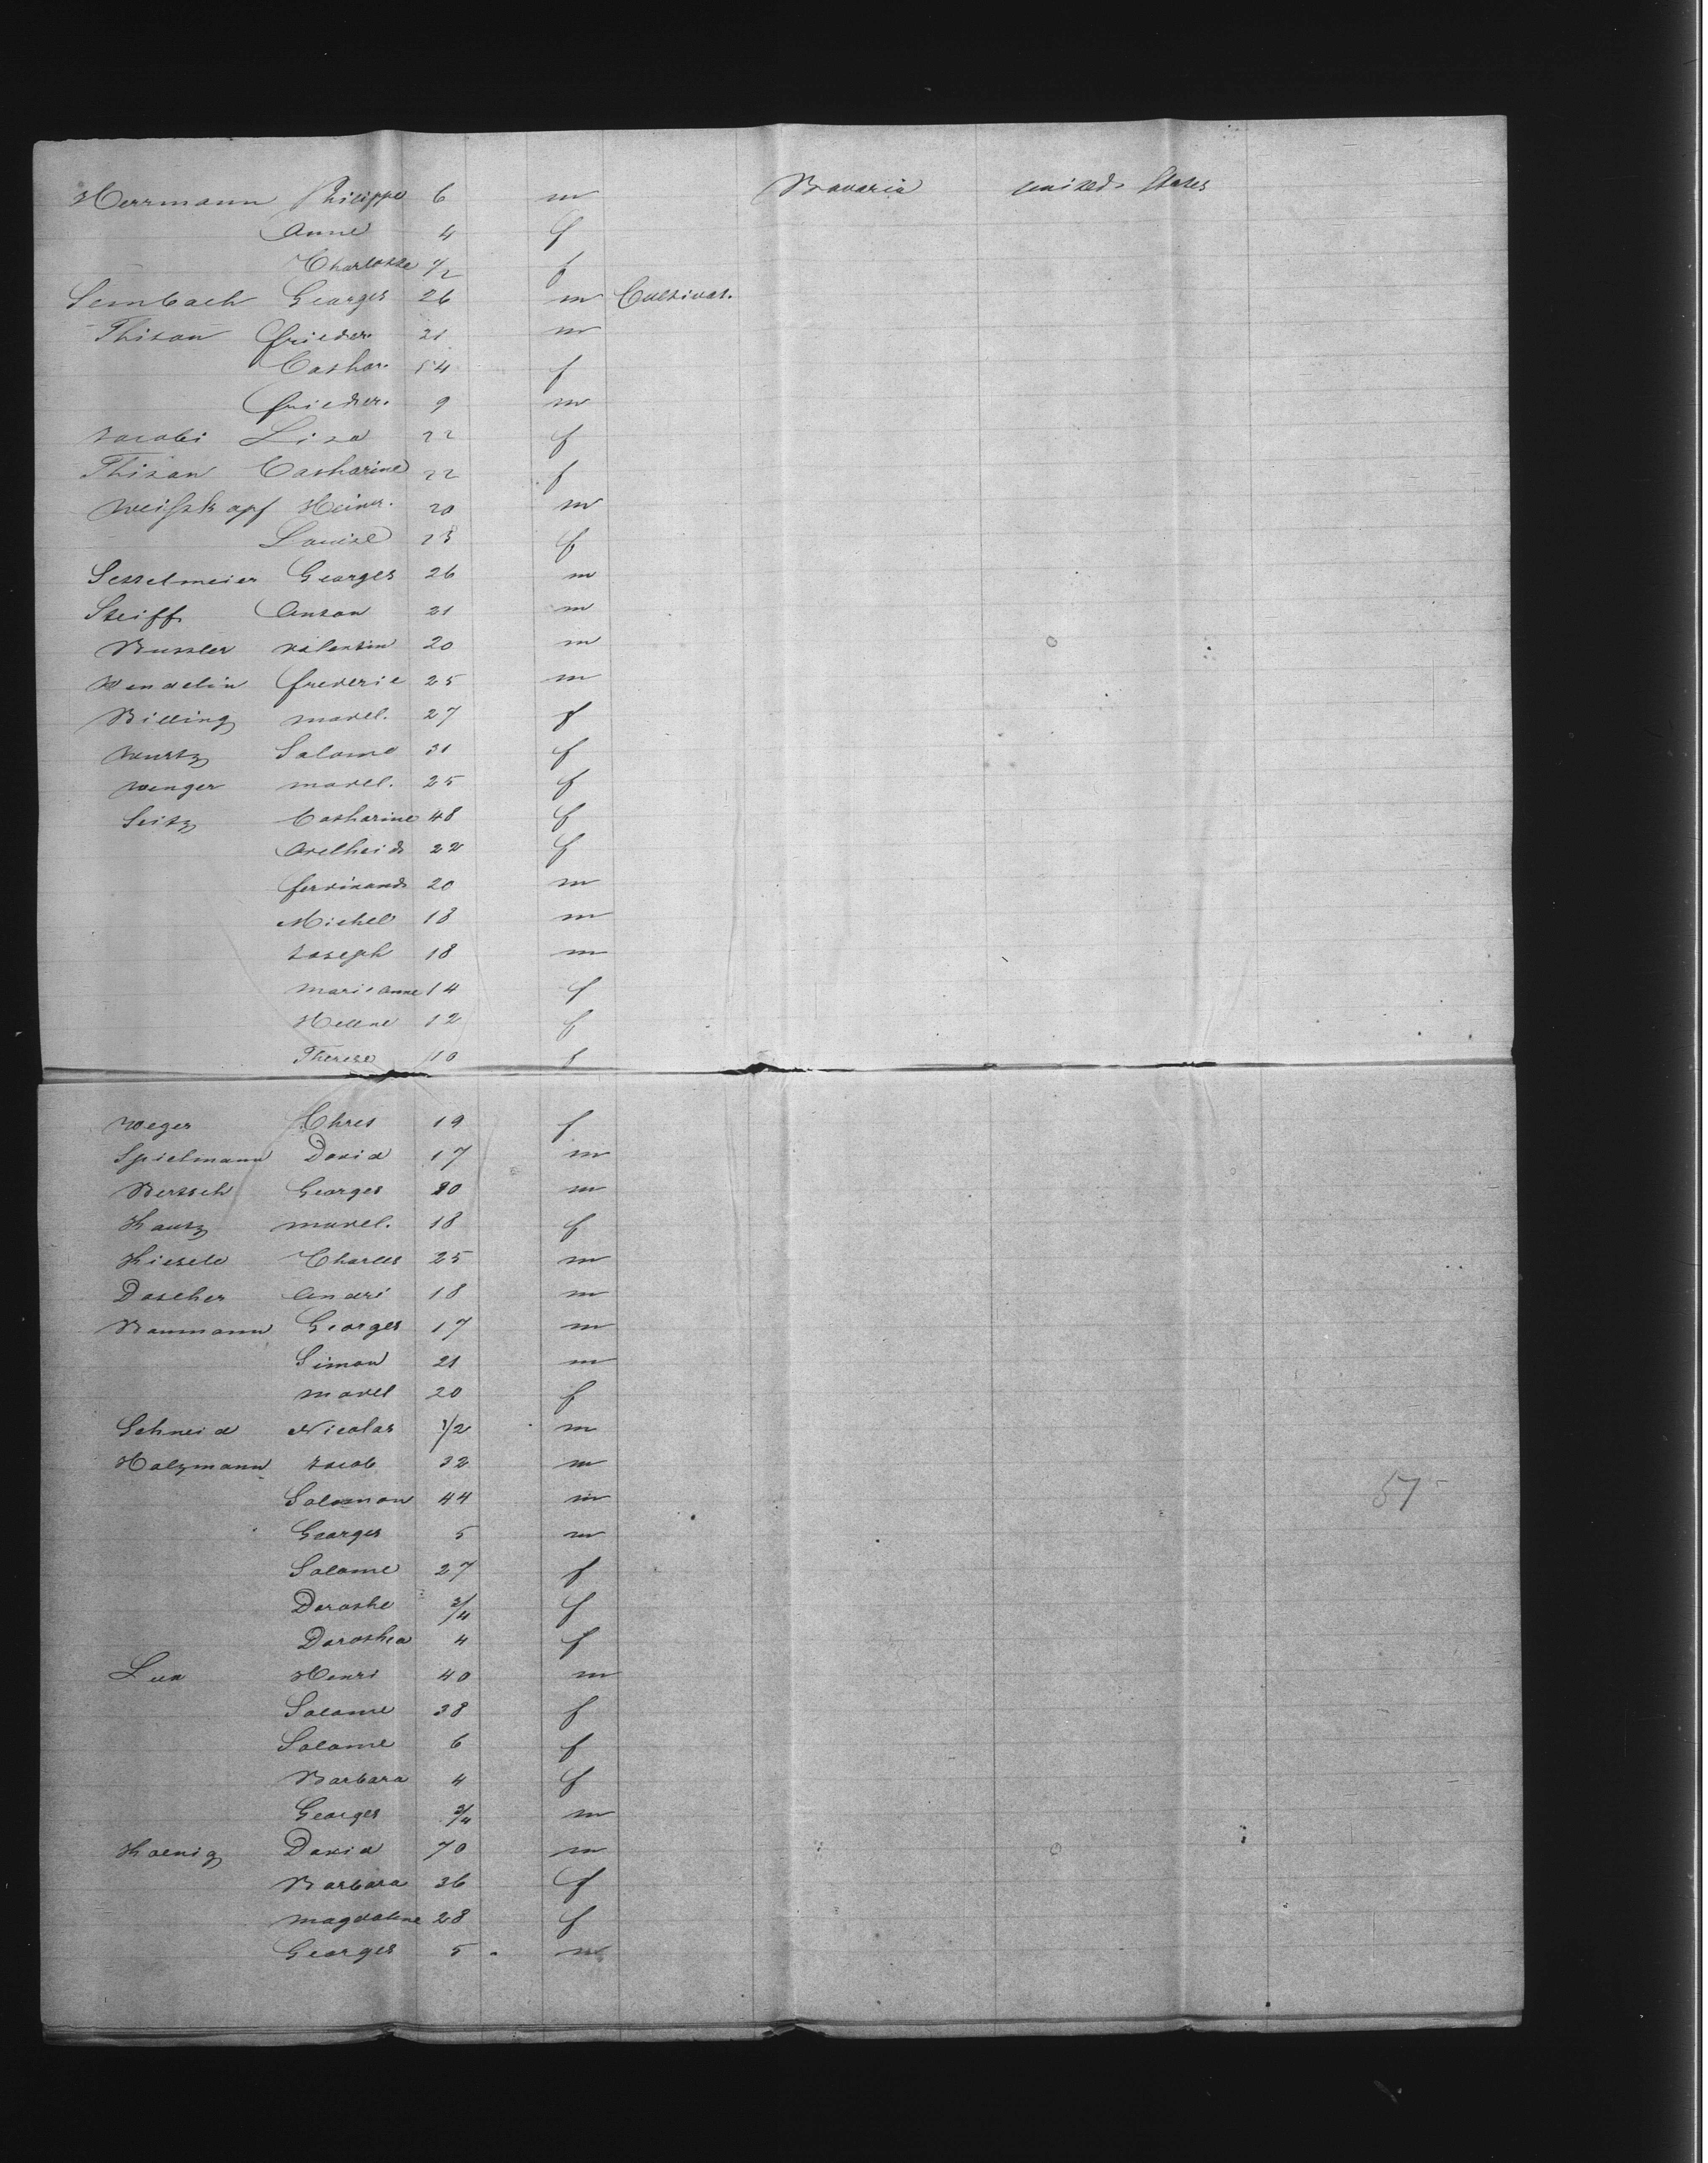 Herrmann Philippe 6 m Bavaria united States
Anne 4 f
Charlotte 1/2 f
Sembach Georges 26 m Cultivat.
Thison frieder. 21 m
Cathar. 54 f
frieder. 9 m
Jacobi Lisa 22 f
Thison Catharine 22 f
Weisskopf Heinr. 20 m
Louise 23 f
Sesselmeier Georges 26 m
Steiff Anton 21 m
Bussler valentin 20 m
Wendelin frederic 25 m
Billing madel. 27 f
Wurtz Salome 31 f
wenger madel. 25 f
Seitz Catharine 48 f
Adelheid 22 f
ferdinand 20 m
Michel 18 m
Joseph 18 m
marieanne 14 f
Hellene 12 f
Therese 10 f
Weger Chret 19 f
Spielmann David 17 m
Bertsch Georges 20 m
Kautz madel. 18 f
Kiesele Charles 25 m
Dascher André 18 m
Baumann Georges 17 m
Simon 21 m
madel 20 f
Schneid Nicolas 1/2 m
Holzmann Jacob 32 m
Salomon 44 m
Georges 5 m
Salome 27 f
Dorothe 3/4 f
Dorothea 4 f
Lux Henri 40 m
Salome 38 f
Salome 6 f
Barbara 4 f
Georges 3/4 m
Koenig David 70 m
Barbara 36 f
magdalene 28 f
Georges 5 m
51